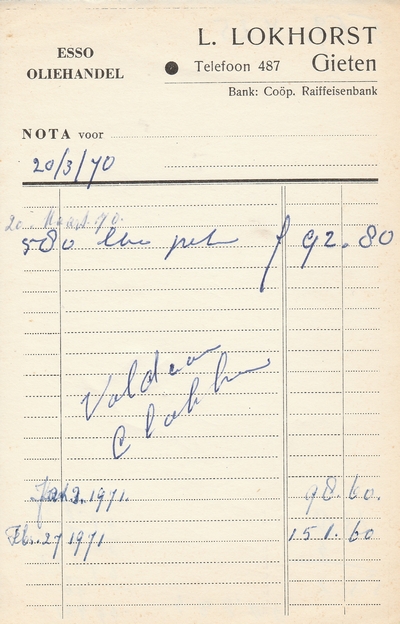 ESSO
OLIEHANDEL
L. LOKHORST
Telefoon 487 Gieten
Bank: Coöp. Raiffeisenbank
NOTA voor
20/3/70
20 Maart 70.
580 f 92.80
Voldaan
Jan 2. 1971. 98.60.
Feb. 27 1971 151.60